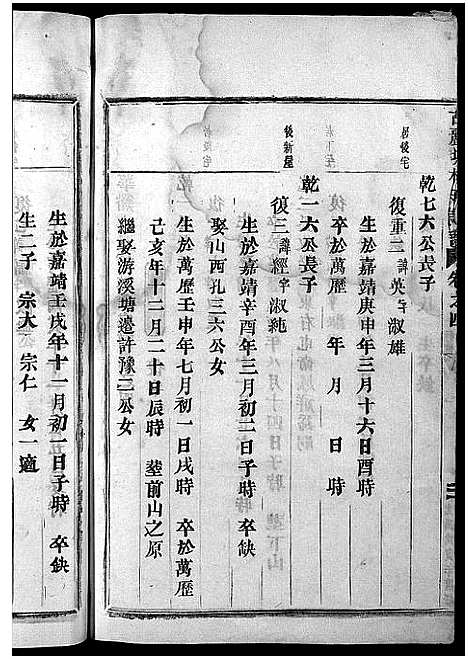 乾七六公長子
復重二 諱英 字淑雄
生於嘉靖庚申年三月十六日酉時
卒於萬歷 年 月 日 時
後新屋
乾一六公長子
復三 諱經 字淑純
生於嘉靖辛酉年三月初二日子時 卒缺
娶山西孔三六公女
生於萬歷壬申年七月初一日戌時 卒於萬歷
己亥年十二月二十日辰時 塟前山之原
繼娶游溪塘邊許豫三公女
生於嘉靖壬戌年十一月初二日子時 卒缺
生二子 宗大 宗仁 女一適